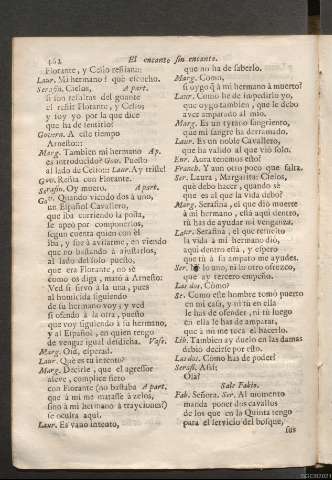 162
El encanto sin encanto.
Florante, y Celio reñian:
Laur. Mi hermano! què escucho.
Serafin. Cielos, A part.
si son resultas del guante
el reñir Florante, y Celio;
y soy yo por la que dice
que ha de sentirlo?
Govern. A este tiempo
Arnesto::
Marg. Tambien mi hermano Ap.
es introducido? Gov. Puesto
al lado de Celio:: Laur. Ay triste!
Gov. Reñia con Florante.
Serafin. Oy muero. A part.
Gov. Quando viendo dos à uno,
un Español Cavallero,
que iba corriendo la posta,
se apeò por componerlos,
segun cuenta quien con èl
iba, y fue à avisarme, en viendo
que no bastando à ajustarlos,
al lado del solo puesto,
que era Florante, no sè
como os diga, matò à Arnesto:
Ved si sirvo à la una, pues
al homicida siguiendo
de su hermano voy; y ved
si ofendo à la otra, puesto
que voy siguiendo à su hermano,
y al Español, en quien tengo
de vengar igual desdicha. Vase.
Marg. Oid, esperad.
Laur. Què es tu intento?
Marg. Decirle, que el agressor
aleve, complice fiero
con Florante (no bastaba A part.
que à mi me matasse à zelos,
sino à mi hermano à trayciones?)
se oculta aqui.
Laur. Es vano intento,
que no ha de saberlo.
Marg. Como,
si oygo à mi hermano à muerto?
Laur. Como he de impedirlo yo,
que oygo tambien, que le debo
aver amparado al mio.
Marg. Es un tyrano sangriento,
que mi sangre ha derramado.
Laur. Es un noble Cavallero,
que ha valido al que viò solo.
Enr. Aura tenemos esto?
Franch. Y aun otro poco que falta.
Ser. Laura, Margarita: Cielos,
què debo hacer, quando sè
que es al que la vida debo?
Marg. Serafina, el que diò muerte
à mi hermano, està aqui dentro,
tù has de ayudar mi venganza.
Laur. Serafina, el que
la vida à mi hermano diò,
aqui dentro està, y espero
que tù à su amparo me ayudes.
Ser. lo uno, ni lo otro ofrezco,
que ay tercero empeño.
Las dos. Còmo?
Se. Como este hombre tomò puerto
en mi casa, y ni tù en ella
le has de ofender, ni tù luego
en ella le has de amparar,
que à mi me toca el hacerlo.
Lib. Tambien ay duelo en las damas
debiò decirse por esto.
Las dos. Còmo has de poder?
Seraf. Assi:
Ola?
Sale Fabio.
Fab. Señora. Ser. Al momento
manda poner dos cavallos
de los que en la Quinta tengo
para el servicio del bosque,
sus